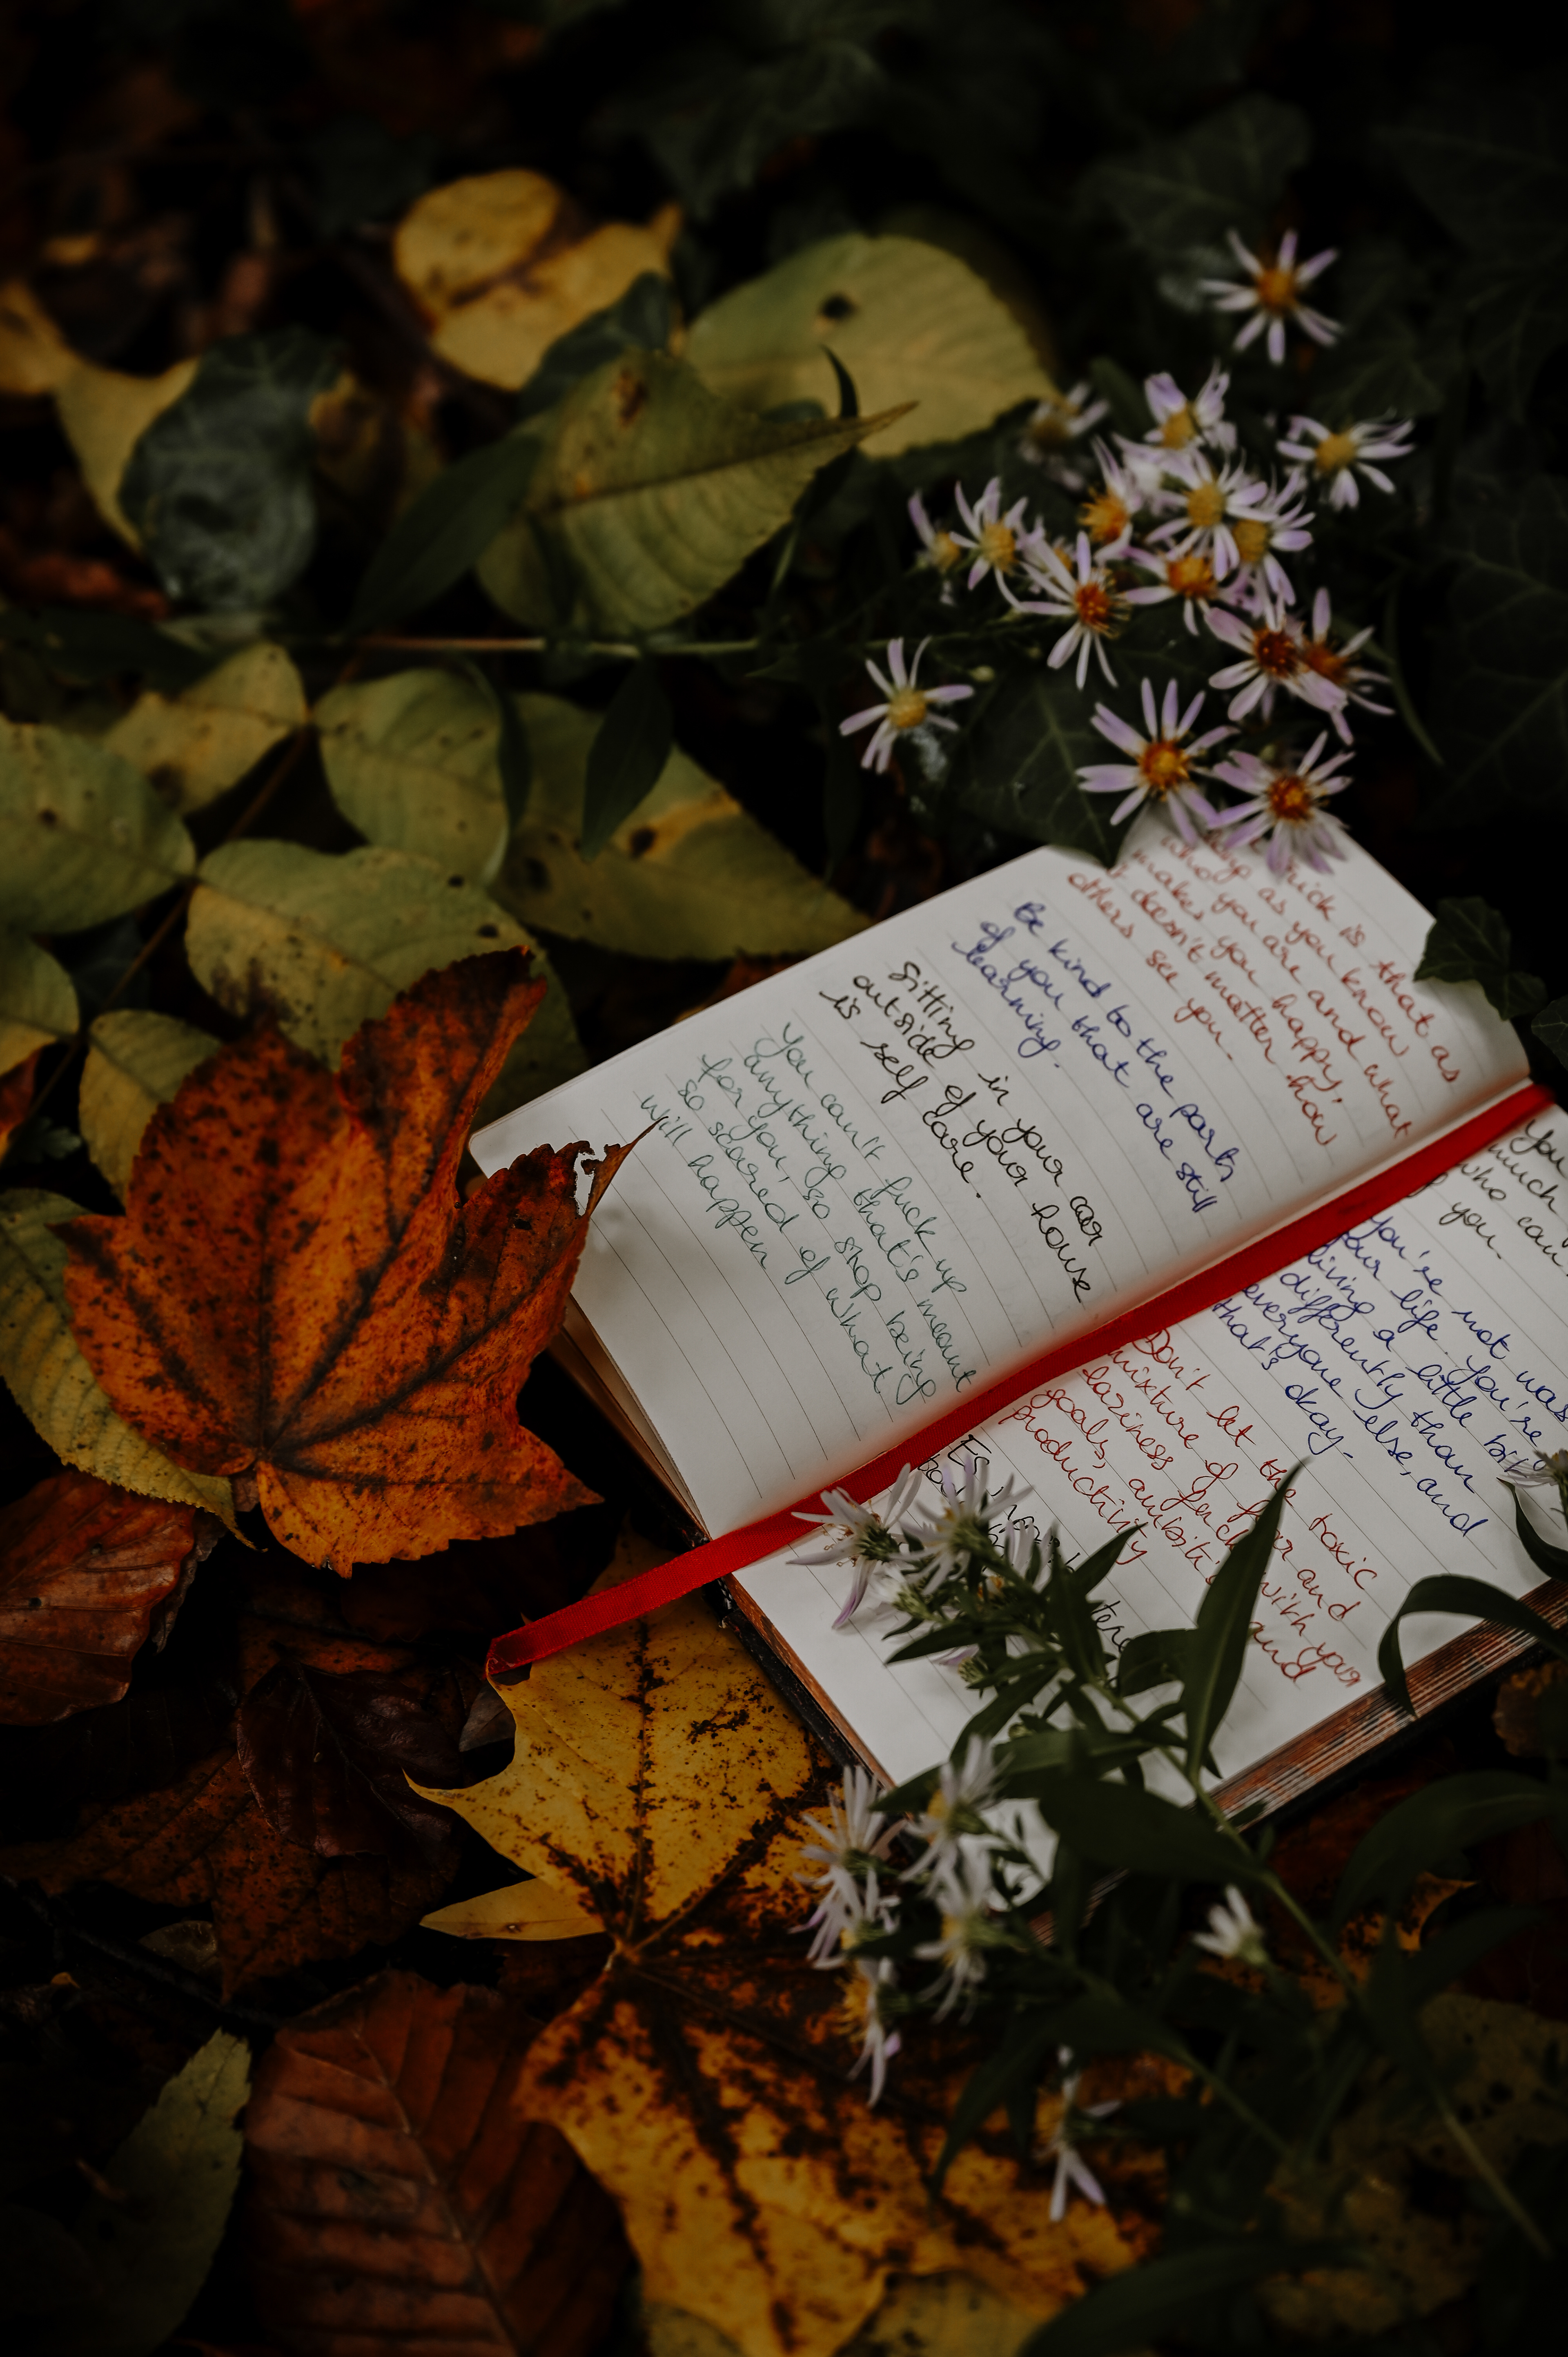 trick is that as
long as you know
who you are and what
makes you happy,
it doesn't matter how
others see you.
Be kind to the parts
of you that are still
learning.
Sitting in your car
outside of your house
is self care.
You can't fuck up
anything that's meant
for you, so stop being
so scared of what
will happen
You
much
who can
you.
You're not
your life. You're
living a little bit
differently than
everyone else, and
that's okay.
Don't let the toxic
mixture of fear and
laziness with your
goals, and
productivity